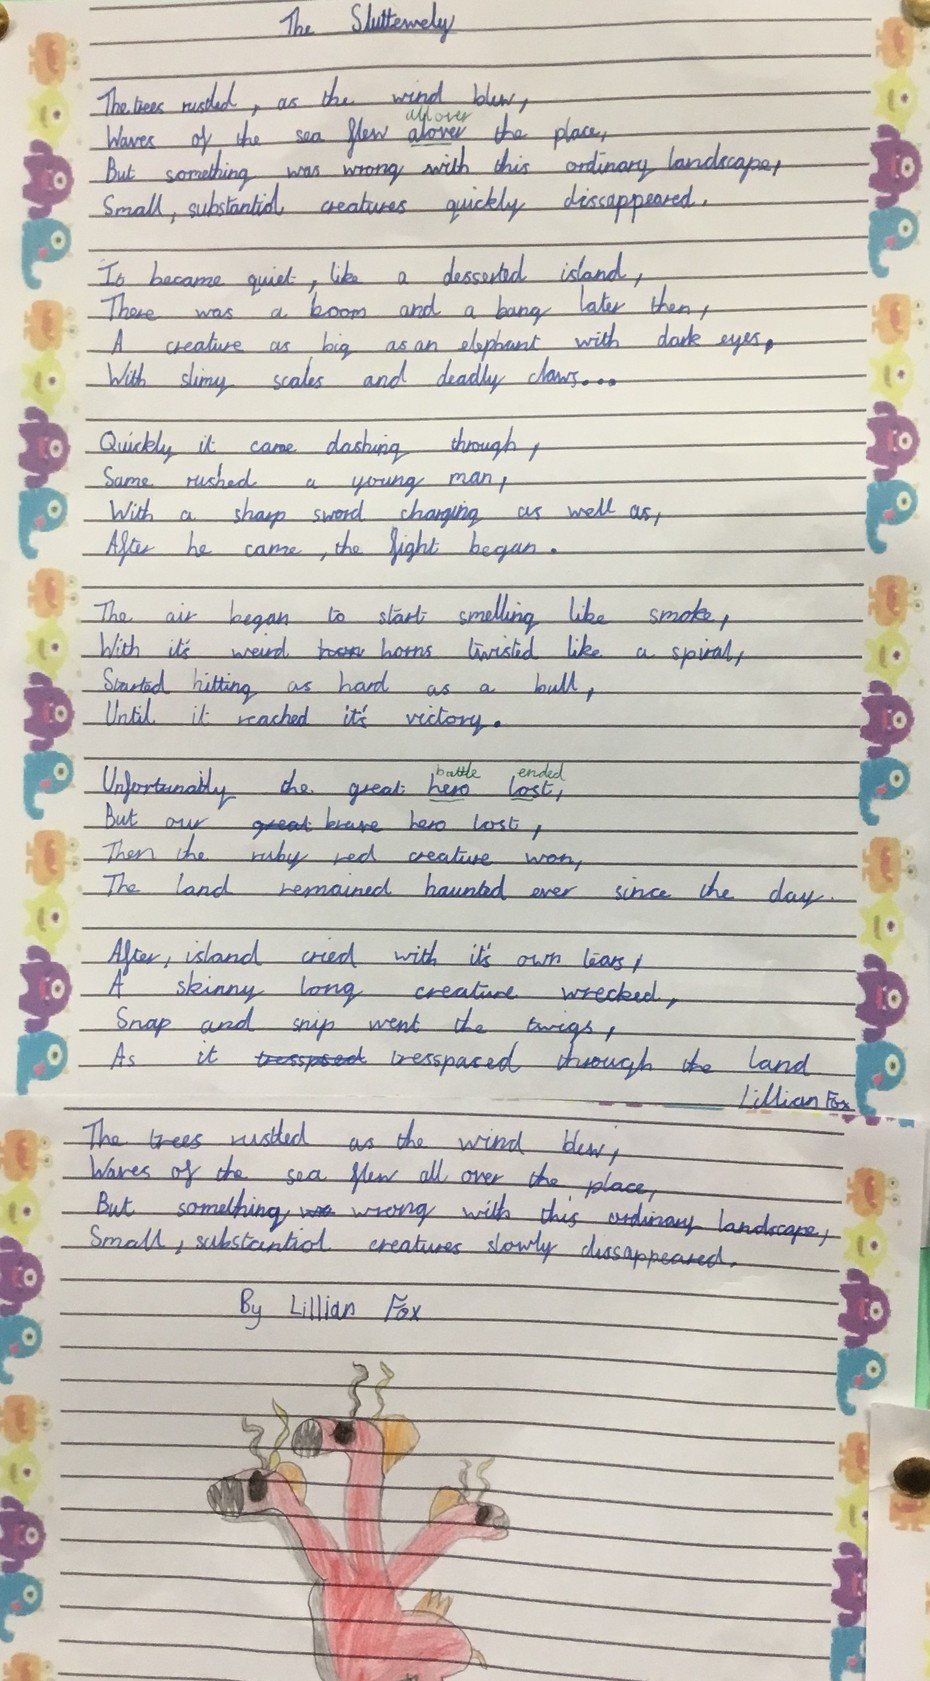 The Sluttemely
The trees rustled, as the wind blew,
all over
Waves of the sea flew alover the place,
But something was wrong with this ordinary landscape,
Small, substantial creatures quickly dissappeared.
It became quiet, like a desserted island,
There was a boom and a bang later then,
A creature as big as an elephant with dark eyes,
With slimy scales and deadly claws...
Quickly it came dashing through,
Same rushed a young man,
With a sharp sword charging as well as,
After he came, the fight began.
The air began to start smelling like smoke,
With it's weird horn horns twisted like a spiral,
Started hitting as hard as a bull,
Until it reached it's victory.
battle ended
Unfortunatly the great hero lost,
But our great brave hero lost,
Then the ruby red creature won,
The land remained haunted ever since the day.
After, island cried with it's own tears,
A skinny long creature wrecked,
Snap and snip went the twigs,
As it tresspsed tresspaced through the land
Lillian Fox
The trees rustled as the wind blew,
Waves of the sea flew all over the place,
But something wa wrong with this ordinary landscape,
Small, substantial creatures slowly dissappeared.
By Lillian Fox